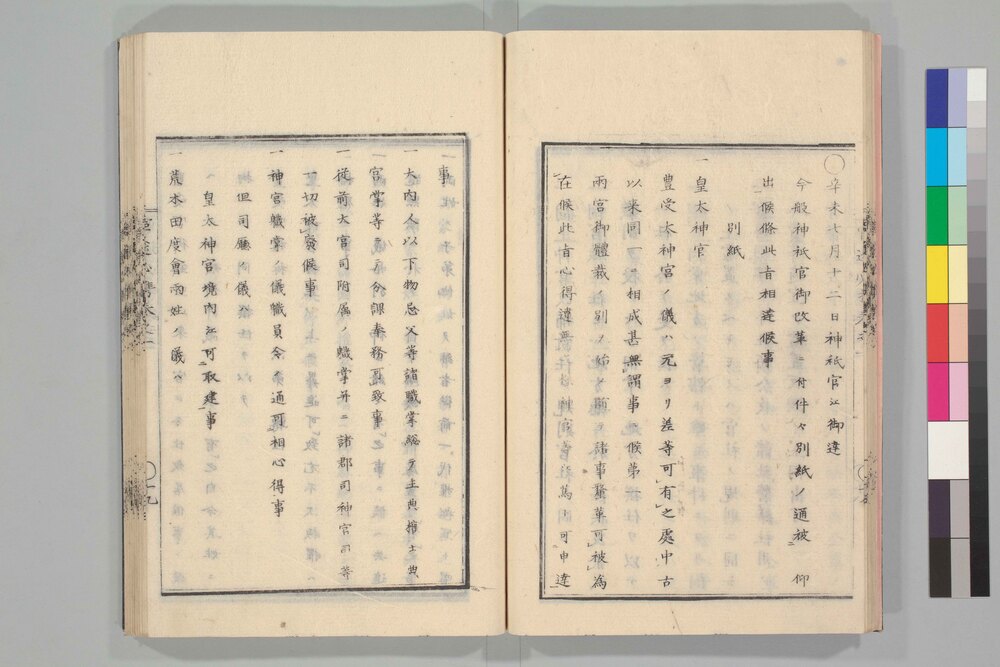 〇辛未七月十二日神祇官江御達
今般神祇官御改革ニ付件々別紙ノ通被　仰
出候條此旨相達候事
別紙
一
皇太神宮
豊受太神宮ノ儀ハ元ヨリ差等可有之處中古
以来同一ニ相成甚無謂事ニ候第
兩宮御體裁別ノ始トシ諸事釐革可被為
在候此旨心得違無
事
一大内人以下物忌父等諸職掌総テ主典権主典
宮掌等ニテ分課奉務可致事
一従前大宮司附属ノ職掌并ニ諸郡司神官司等
一切被廢候事
一神宮職掌ノ儀職員令ノ通可相心得事
但司廳ノ儀ハ
皇太神宮境内江可取建事
一荒木田度會両姓ノ儀ハ